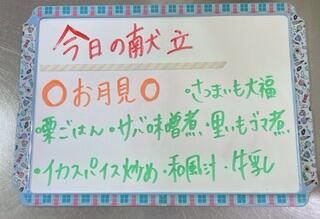 今日の献立
○お月見○ ・さつまいも大福
・栗ごはん・サバ味噌煮・里いもゴマ煮
・イカスパイス炒め・和風汁・牛乳